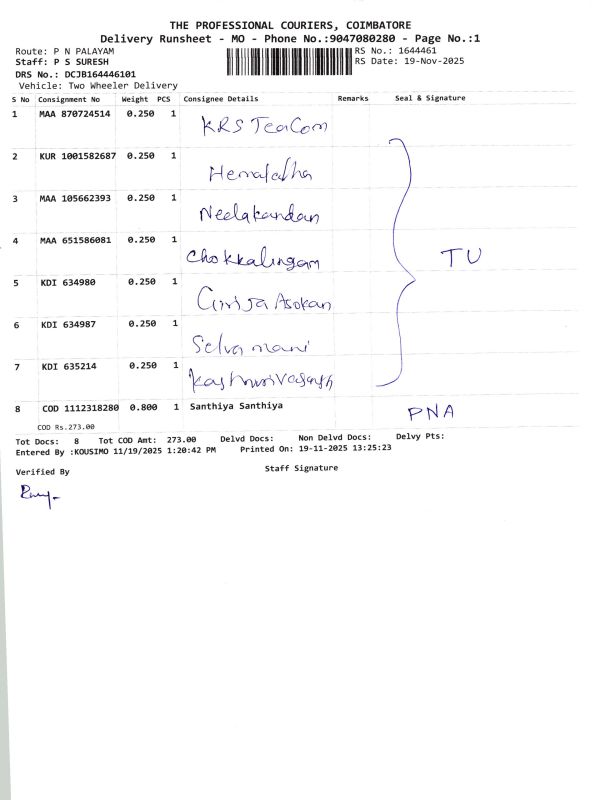 THE PROFESSIONAL COURIERS, COIMBATORE
Delivery Runsheet - MO - Phone No.:9047080280 - Page No.:1
Route: P N PALAYAM RS No.: 1644461
Staff: P S SURESH RS Date: 19-Nov-2025
DRS No.: DCJB164446101
Vehicle: Two Wheeler Delivery
S No Consignment No Weight PCS Consignee Details Remarks Seal & Signature
1 MAA 870724514 0.250 1 KRS TeaCom
2 KUR 1001582687 0.250 1 Hemalatha
3 MAA 105662393 0.250 1 Neelakandan
4 MAA 651586081 0.250 1 Chokkalingam TU
5 KDI 634980 0.250 1 Girija Asokan
6 KDI 634987 0.250 1 Selva mani
7 KDI 635214 0.250 1
8 COD 1112318280 0.800 1 Santhiya Santhiya PNA
COD Rs.273.00
Tot Docs: 8 Tot COD Amt: 273.00 Delvd Docs: Non Delvd Docs: Delvy Pts:
Entered By :KOUSIMO 11/19/2025 1:20:42 PM Printed On: 19-11-2025 13:25:23
Verified By Staff Signature